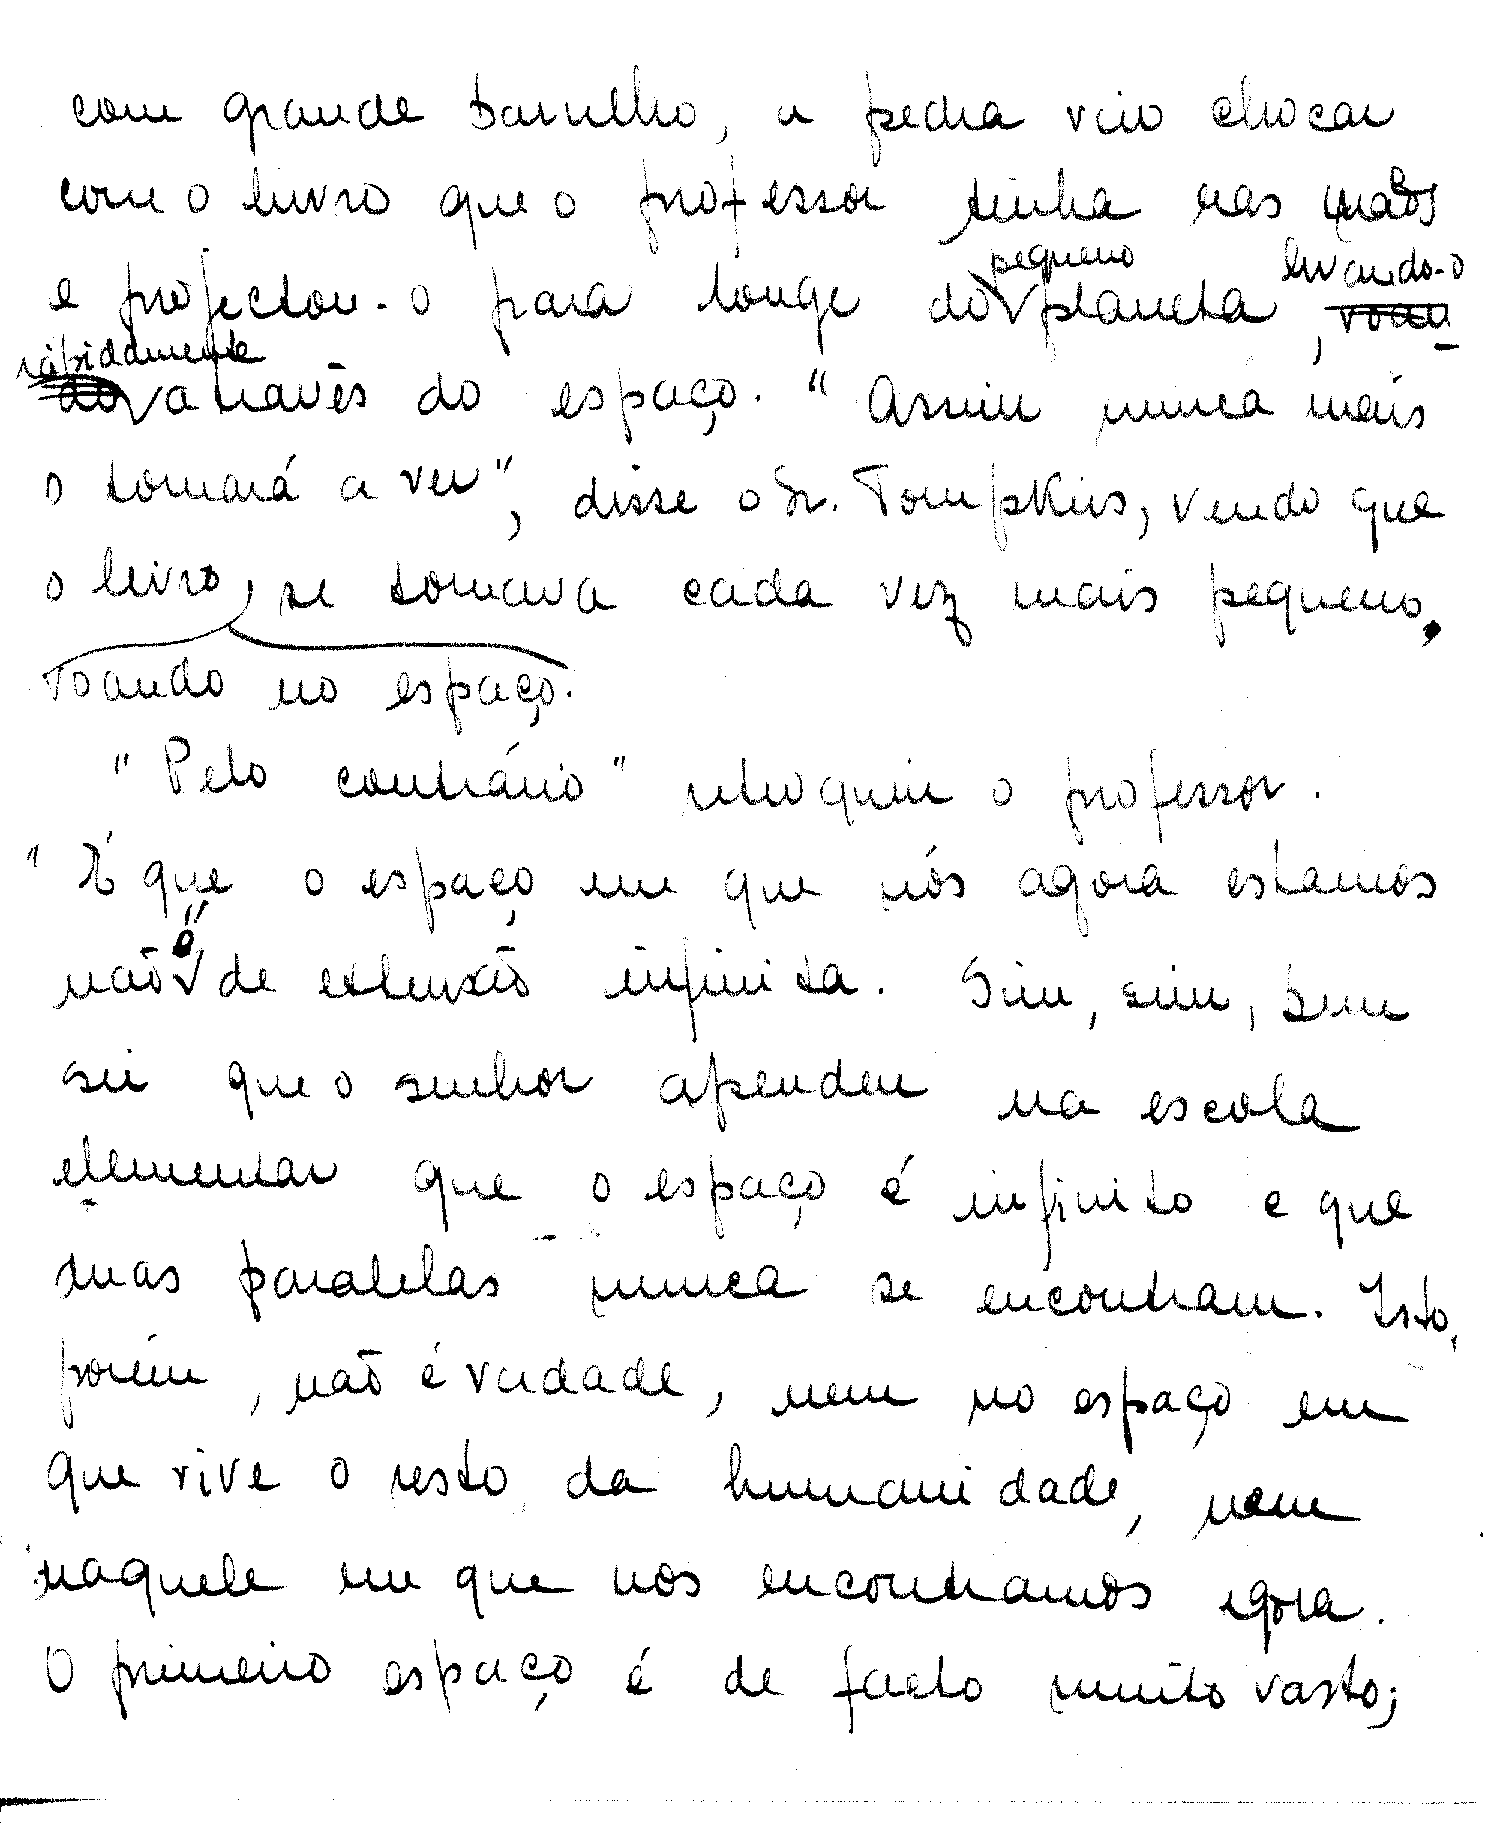 com grande barulho, a pedra veio chocar
com o livro que o professor tinha nas mãos
e projectou-o para longe do pequeno planeta, levando-o voan-
do rápidamente através do espaço. "Assim nunca mais
o tornará a ver", disse o Sr. Tompkins, vendo que
o livro, se tornava cada vez mais pequeno,
voando no espaço.
"Pelo contrário" retroquiu o professor.
"É que o espaço em que nós agora estamos
não é de extensão infinita. Sim, sim, bem
sei que o senhor aprendeu na escola
elementar que o espaço é infinito e que
duas paralelas nunca se encontram. Isto,
porém, não é verdade, nem no espaço em
que vive o resto da humanidade, nem
naquele em que nos encontramos agora.
O primeiro espaço é de facto muito vasto;